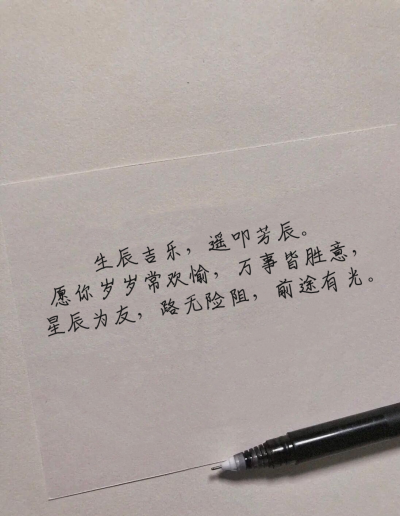 生辰吉乐，遥叩芳辰。
愿你岁岁常欢愉，万事皆胜意，
星辰为友，路无险阻，前途有光。